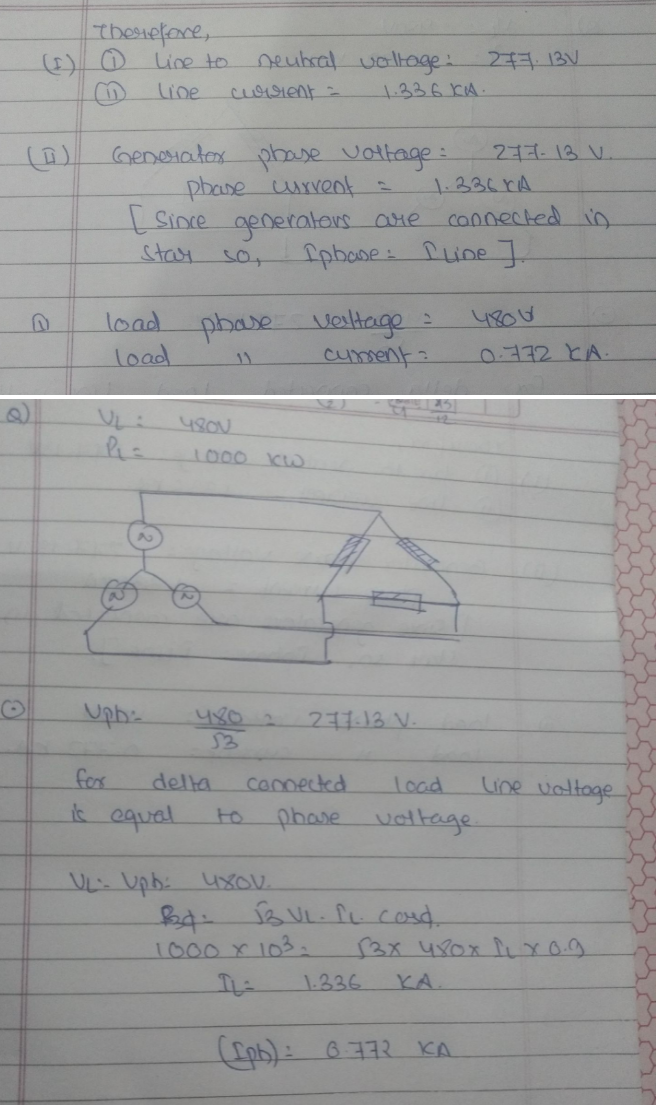 Therefore,
(I) (i) Line to neutral voltage: 277.13V
(ii) Line current = 1.336 KA.
(II) Generator phase voltage = 277.13 V.
phase current = 1.336 KA
[Since generators are connected in
star so, Iphase = ILine].
(i) load phase voltage = 480V
load " current = 0.772 KA.
Q) VL = 480V
PL = 1000 KW
~
~ ~
Vph = 480/√3 = 277.13 V.
for delta connected load line voltage
is equal to phase voltage
VL = Vph = 480V.
P3ϕ = √3 VL. IL cosϕ.
1000 × 10³ = √3 × 480 × IL × 0.9
IL = 1.336 KA.
(Iph) = 0.772 KA